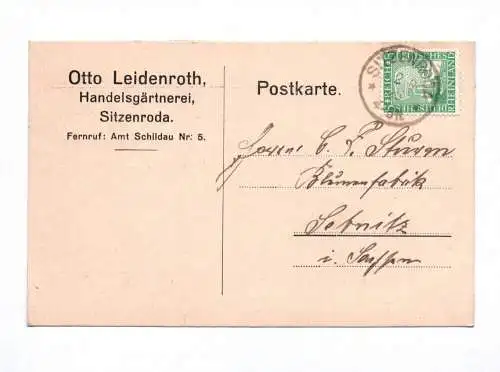 Otto Leidenroth,
Handelsgärtnerei,
Sitzenroda.
Fernruf: Amt Schildau Nr: 5.
Postkarte.
SITZENRODA
DEUTSCHES
REICH
RHEINLAND
Herrn C. F. Sturm
Blumenfabrik
Sebnitz
i. Sachsen